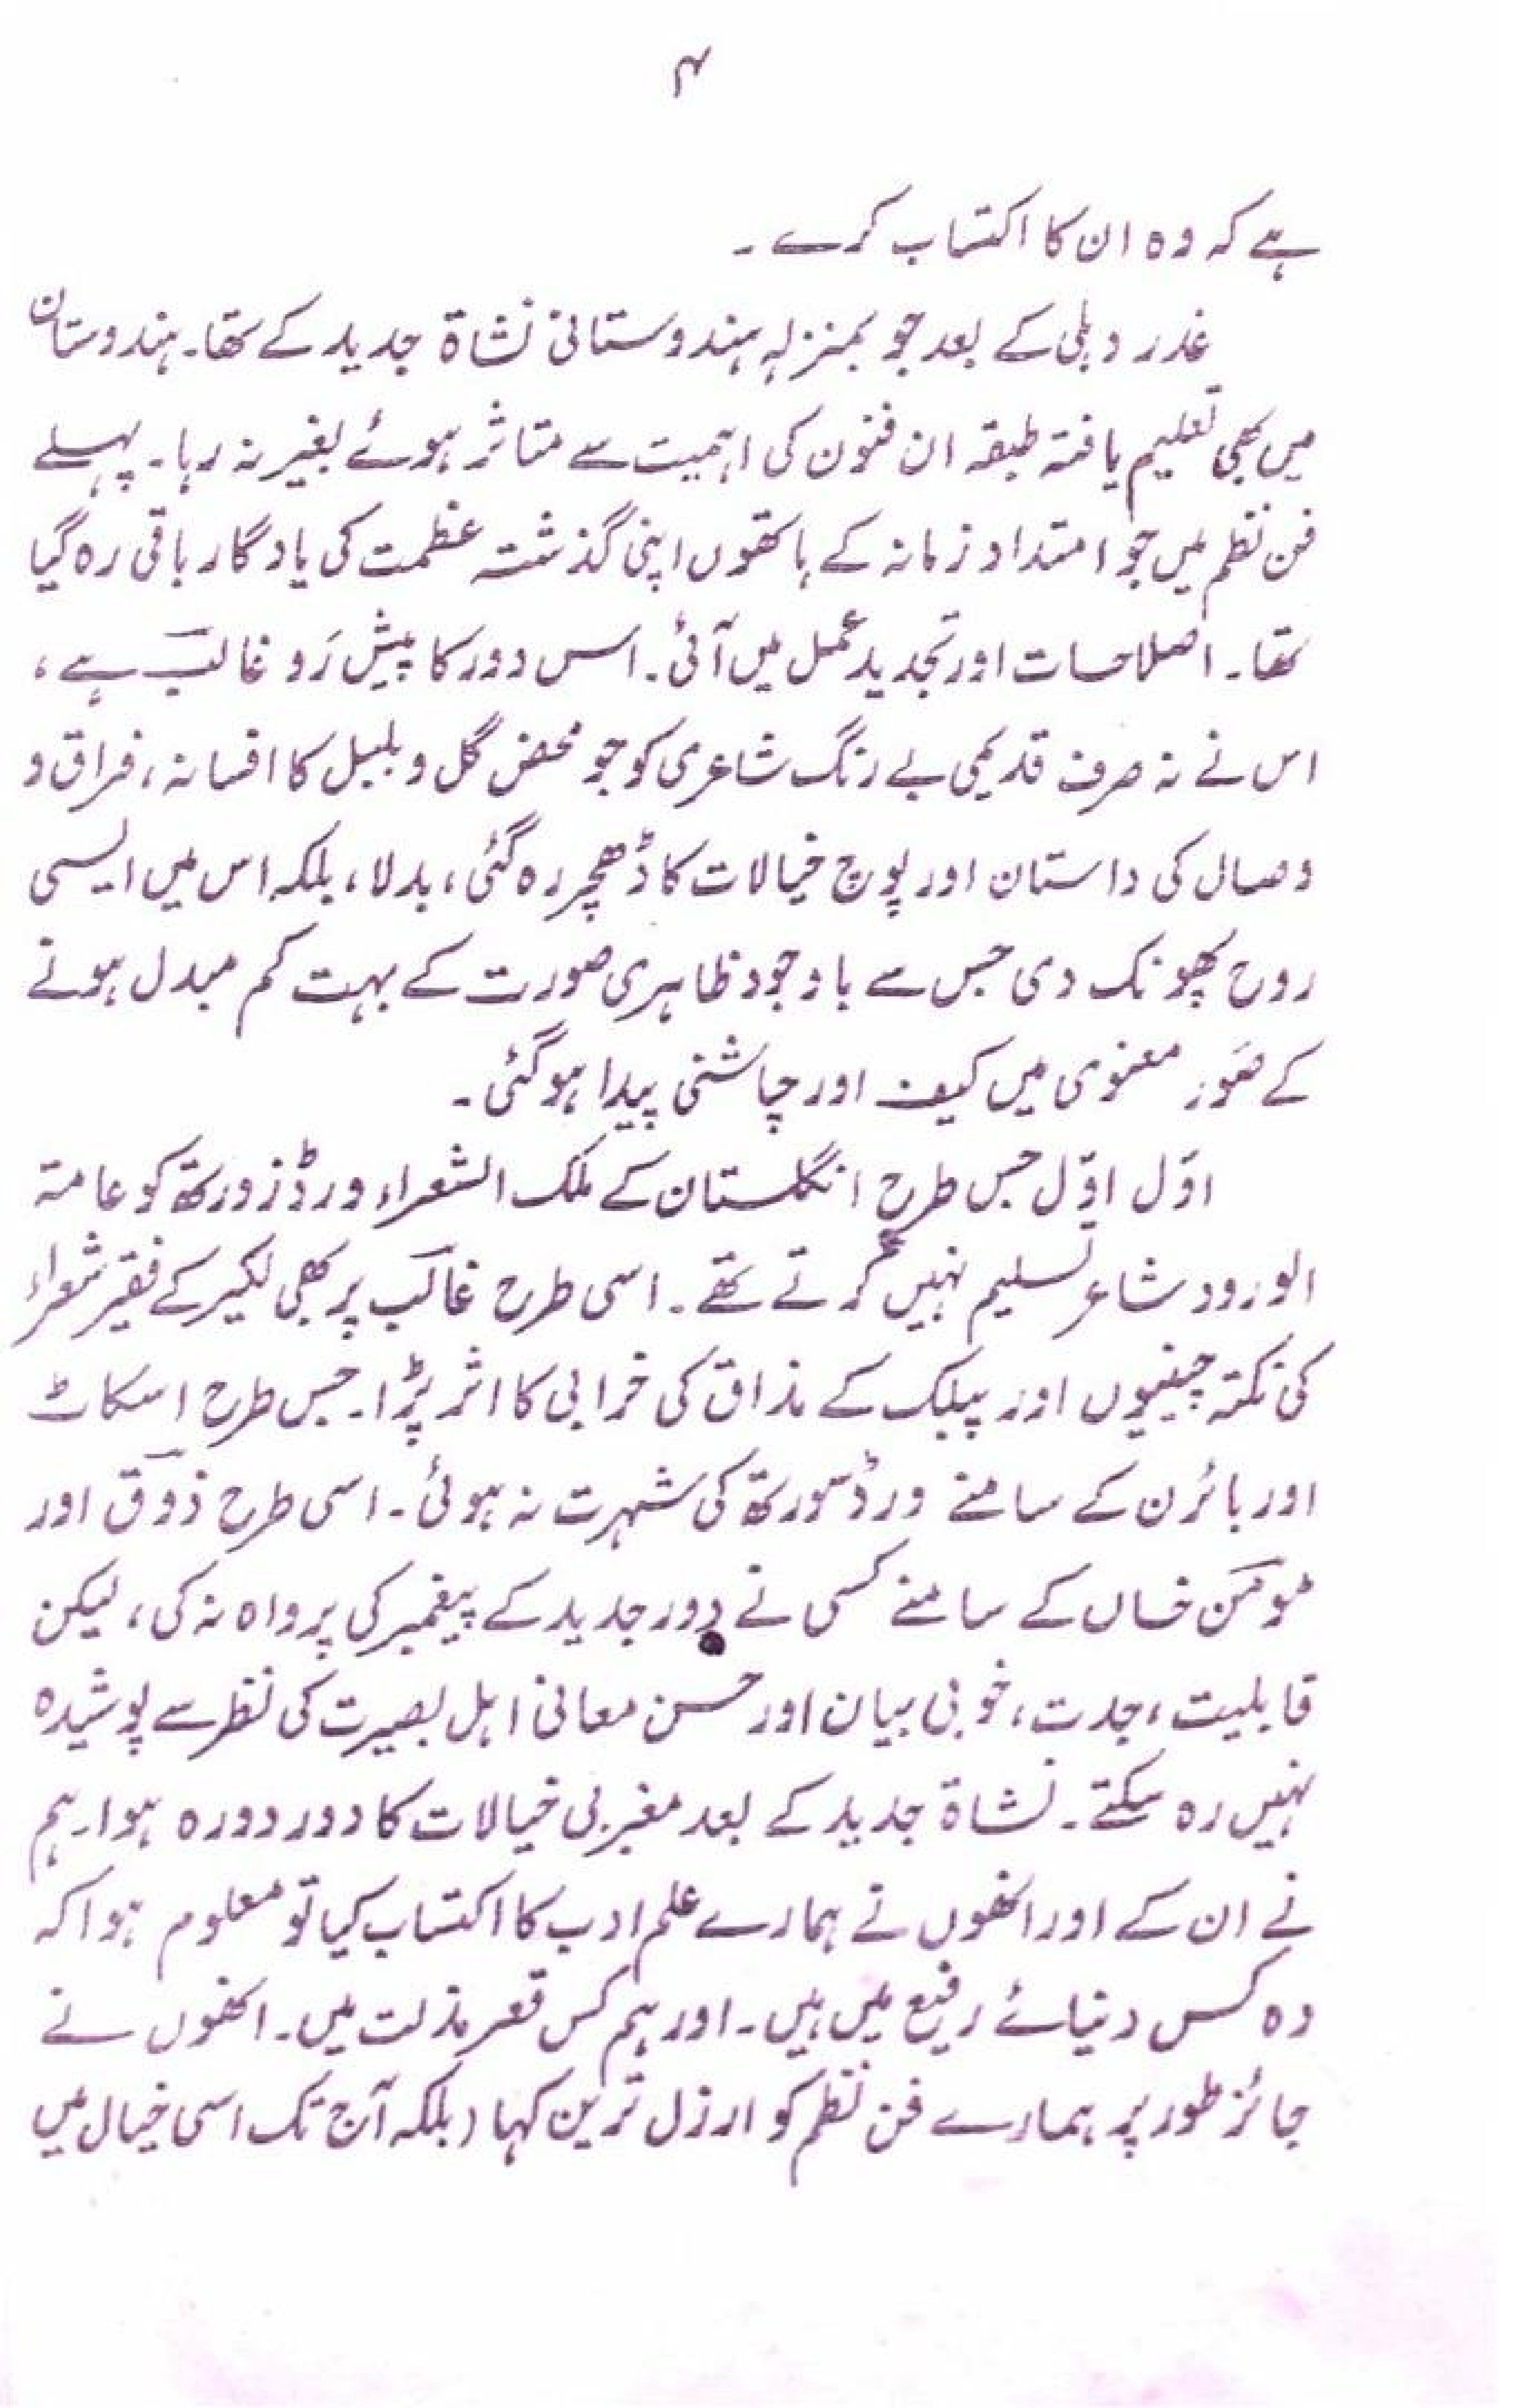 ۴
ہے کہ وہ ان کا اکتساب کرے ۔
غدر دہلی کے بعد جو بمنزلہ ہندوستانی نشاۃ جدید کے تھا۔ ہندوستان
میں بھی تعلیم یافتہ طبقہ ان فنون کی اہمیت سے متاثر ہوئے بغیر نہ رہا۔ پہلے
فن نظم میں جو امتداد زمانہ کے ہاتھوں اپنی گذشتہ عظمت کی یادگار باقی رہ گیا
تھا۔ اصلاحات اور تجدید عمل میں آئی۔ اس دور کا پیش رَو غالبؔ ہے،
اس نے نہ صرف قدیمی بے رنگ شاعری کو جو محض گل و بلبل کا افسانہ، فراق و
وصال کی داستان اور پوچ خیالات کا ڈھچر رہ گئی، بدلا، بلکہ اس میں ایسی
روح پھونک دی جس سے باوجود ظاہری صورت کے بہت کم مبدل ہونے
کے صُوَر معنوی میں کیف اور چاشنی پیدا ہوگئی۔
اوّل اوّل جس طرح انگلستان کے ملک الشعراء ورڈزورتھ کو عامتہ
الورود شاعر تسلیم نہیں کرتے تھے۔ اسی طرح غالبؔ پر بھی لکیر کے فقیر شعراء
کی نکتہ چینیوں اور پبلک کے مذاق کی خرابی کا اثر پڑا۔ جس طرح اسکاٹ
اور بائرن کے سامنے ورڈسورتھ کی شہرت نہ ہوئی۔ اسی طرح ذوقؔ اور
مومنؔ خاں کے سامنے کسی نے دور جدید کے پیغمبر کی پرواہ نہ کی، لیکن
قابلیت، جدت، خوبی بیان اور حسن معانی اہل بصیرت کی نظر سے پوشیدہ
نہیں رہ سکتے۔ نشاۃ جدید کے بعد مغربی خیالات کا دور دورہ ہوا۔ ہم
نے ان کے اور انھوں نے ہمارے علم ادب کا اکتساب کیا تو معلوم ہوا کہ
وہ کس دنیائے رفیع میں ہیں۔ اور ہم کس قعر مذلت میں۔ انھوں نے
جائز طور پر ہمارے فن نظم کو ارزل ترین کہا (بلکہ آج تک اسی خیال میں